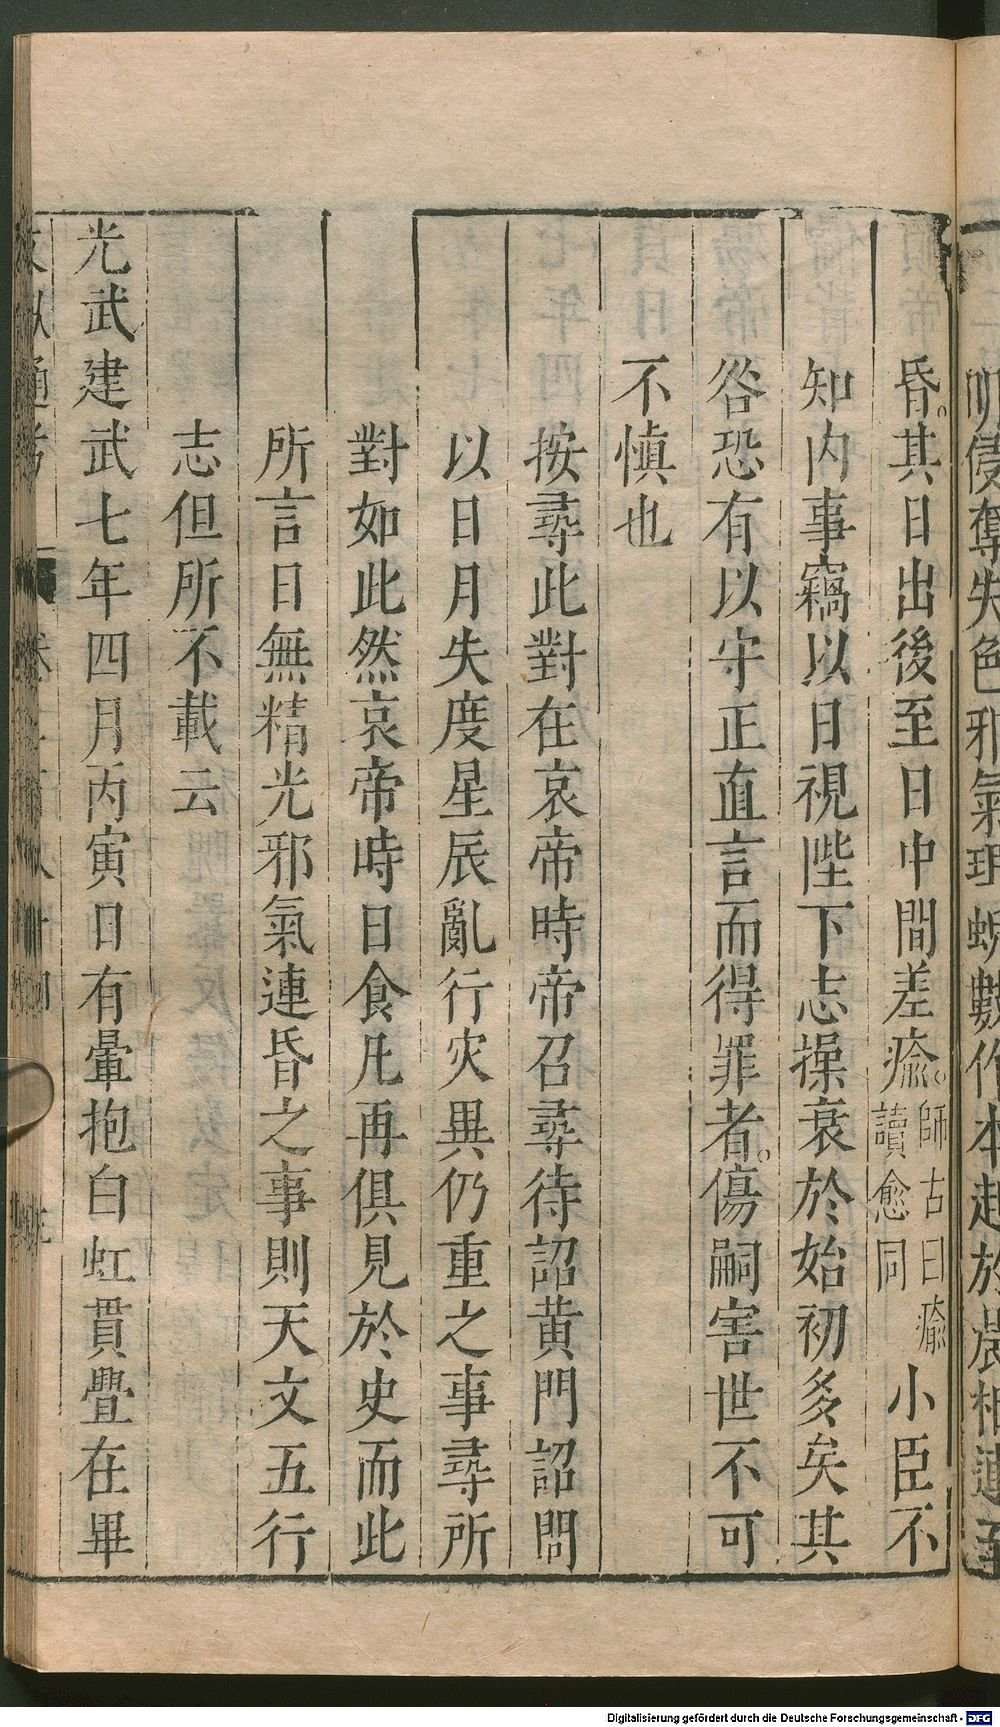 昏其日出後至日中間差瘉師古曰瘉讀愈同小臣不
知内事竊以日視陛下志操衰於始初多矣其
咎恐有以守正直言而得罪者傷嗣害世不可
不慎也
按尋此對在哀帝時帝召尋待詔黄門詔問
以日月失度星辰亂行灾異仍重之事尋所
對如此然哀帝時日食凡再俱見於史而此
所言日無精光邪氣連昏之事則天文五行
志但所不載云
光武建武七年四月丙寅日有暈抱白虹貫暈在畢
Digitalisierung gefördert durch die Deutsche Forschungsgemeinschaft - DFG